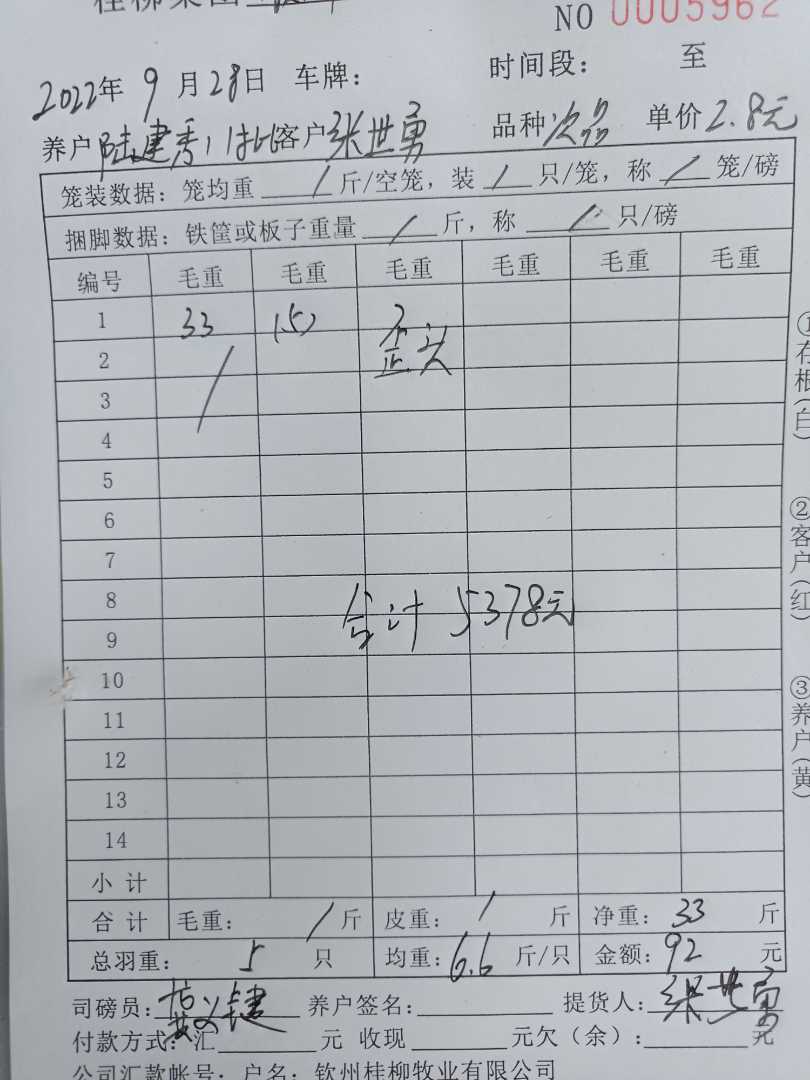 桂柳集团
NO 0005962
2022年 9 月 28 日 车牌： 时间段： 至
养户 陆建秀 客户 张世勇 品种 次品 单价 2.8元
笼装数据：笼均重 / 斤/空笼，装 / 只/笼，称 / 笼/磅
捆脚数据：铁筐或板子重量 / 斤，称 / 只/磅
编号 毛重 毛重 毛重 毛重 毛重 毛重
1 33 (5) 歪头
2 /
3
4
5
6
7
8
合计 5378元
9
10
11
12
13
14
小 计
合 计 毛重： / 斤 皮重： / 斤 净重： 33 斤
总羽重： 5 只 均重： 6.6 斤/只 金额： 92 元
司磅员： 养户签名： 提货人： 张世勇
付款方式：汇 元 收现 元欠（余）： 元
公司汇款帐号：户名：钦州桂柳牧业有限公司
①存根（白）
②客户（红）
③养户（黄）